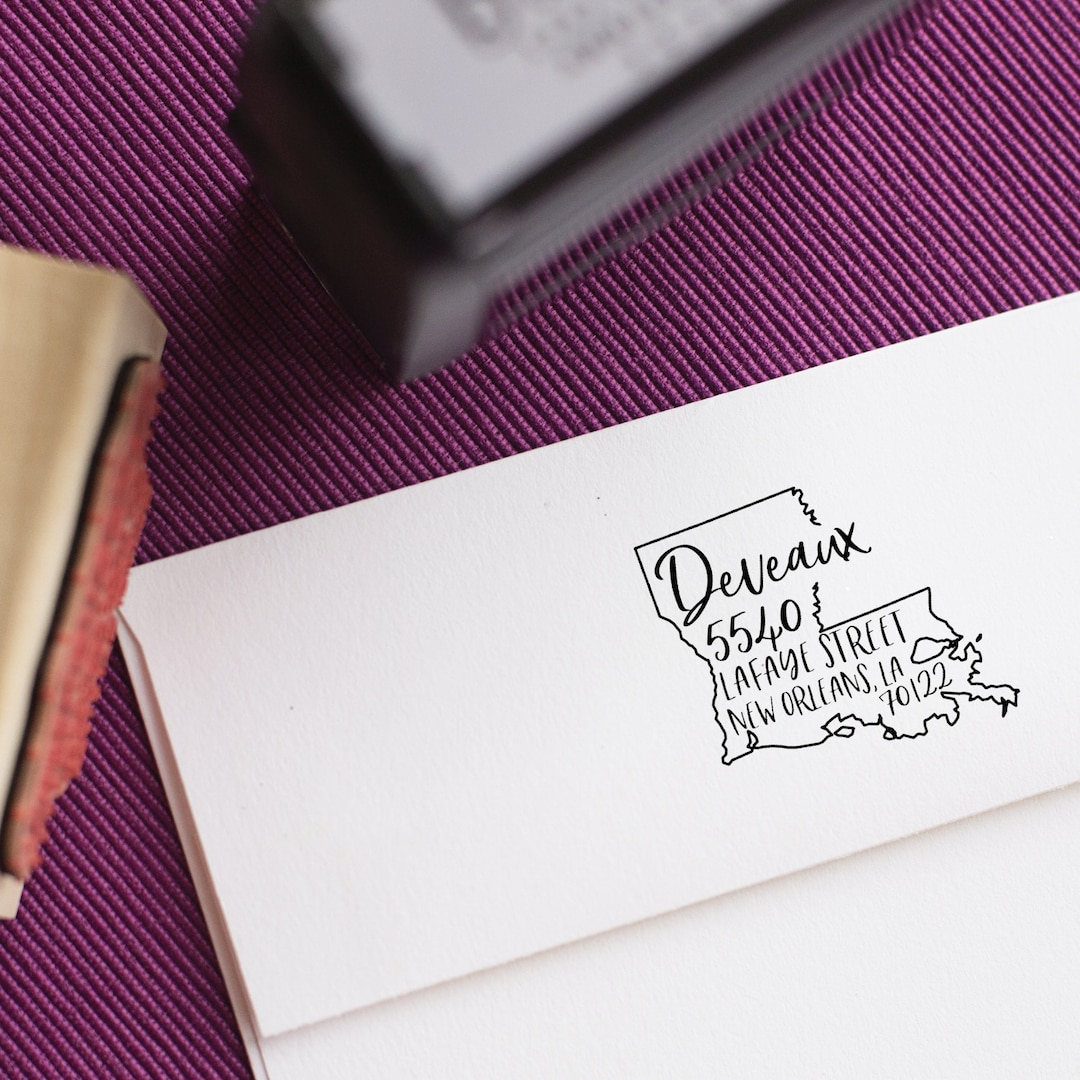 Deveaux
5540
LAFAYE STREET
NEW ORLEANS, LA
70122